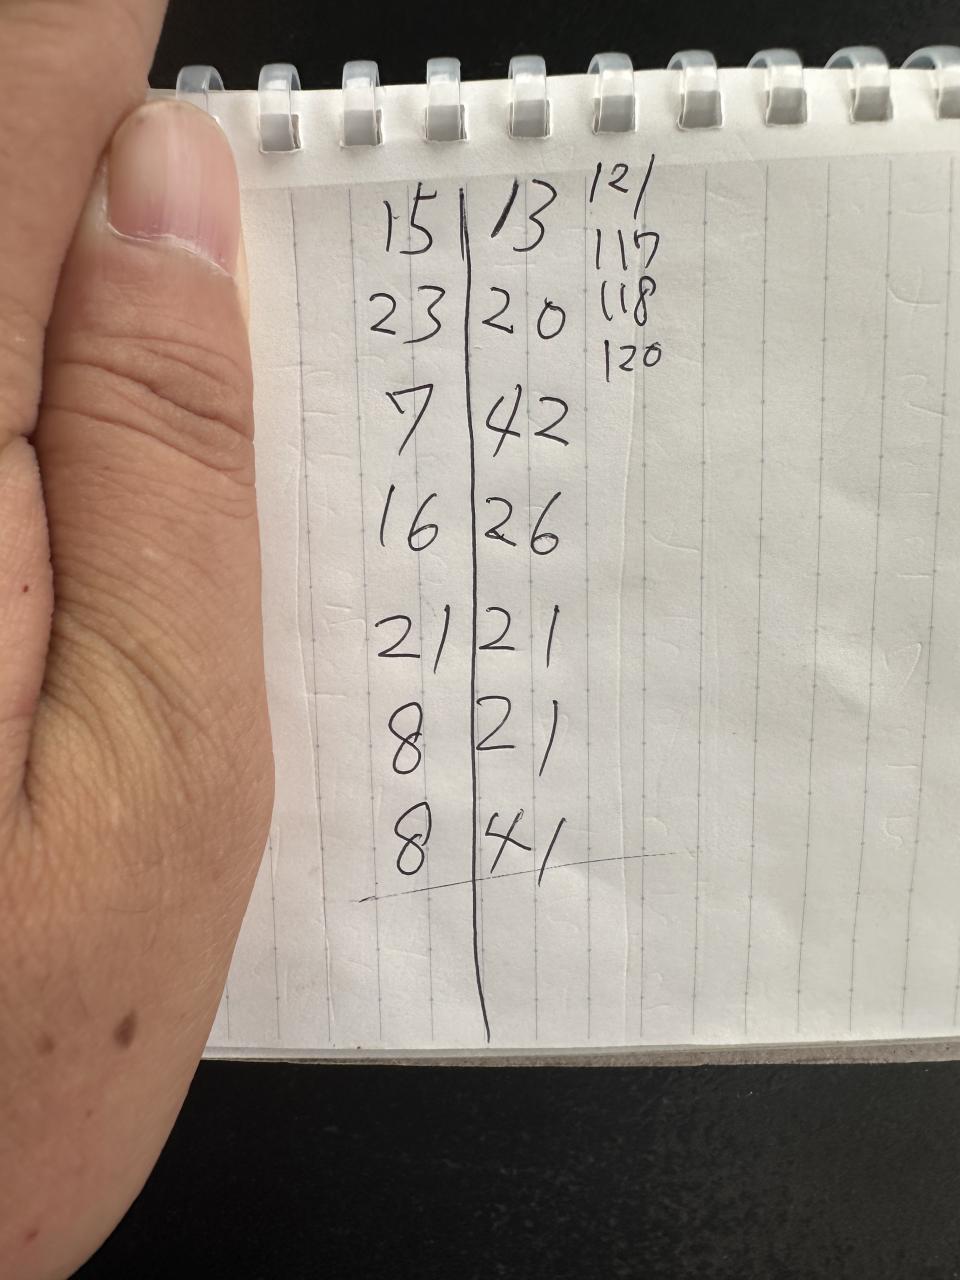 15 | 13
23 | 20
7 | 42
16 | 26
21 | 21
8 | 21
8 | 41
121
117
118
120